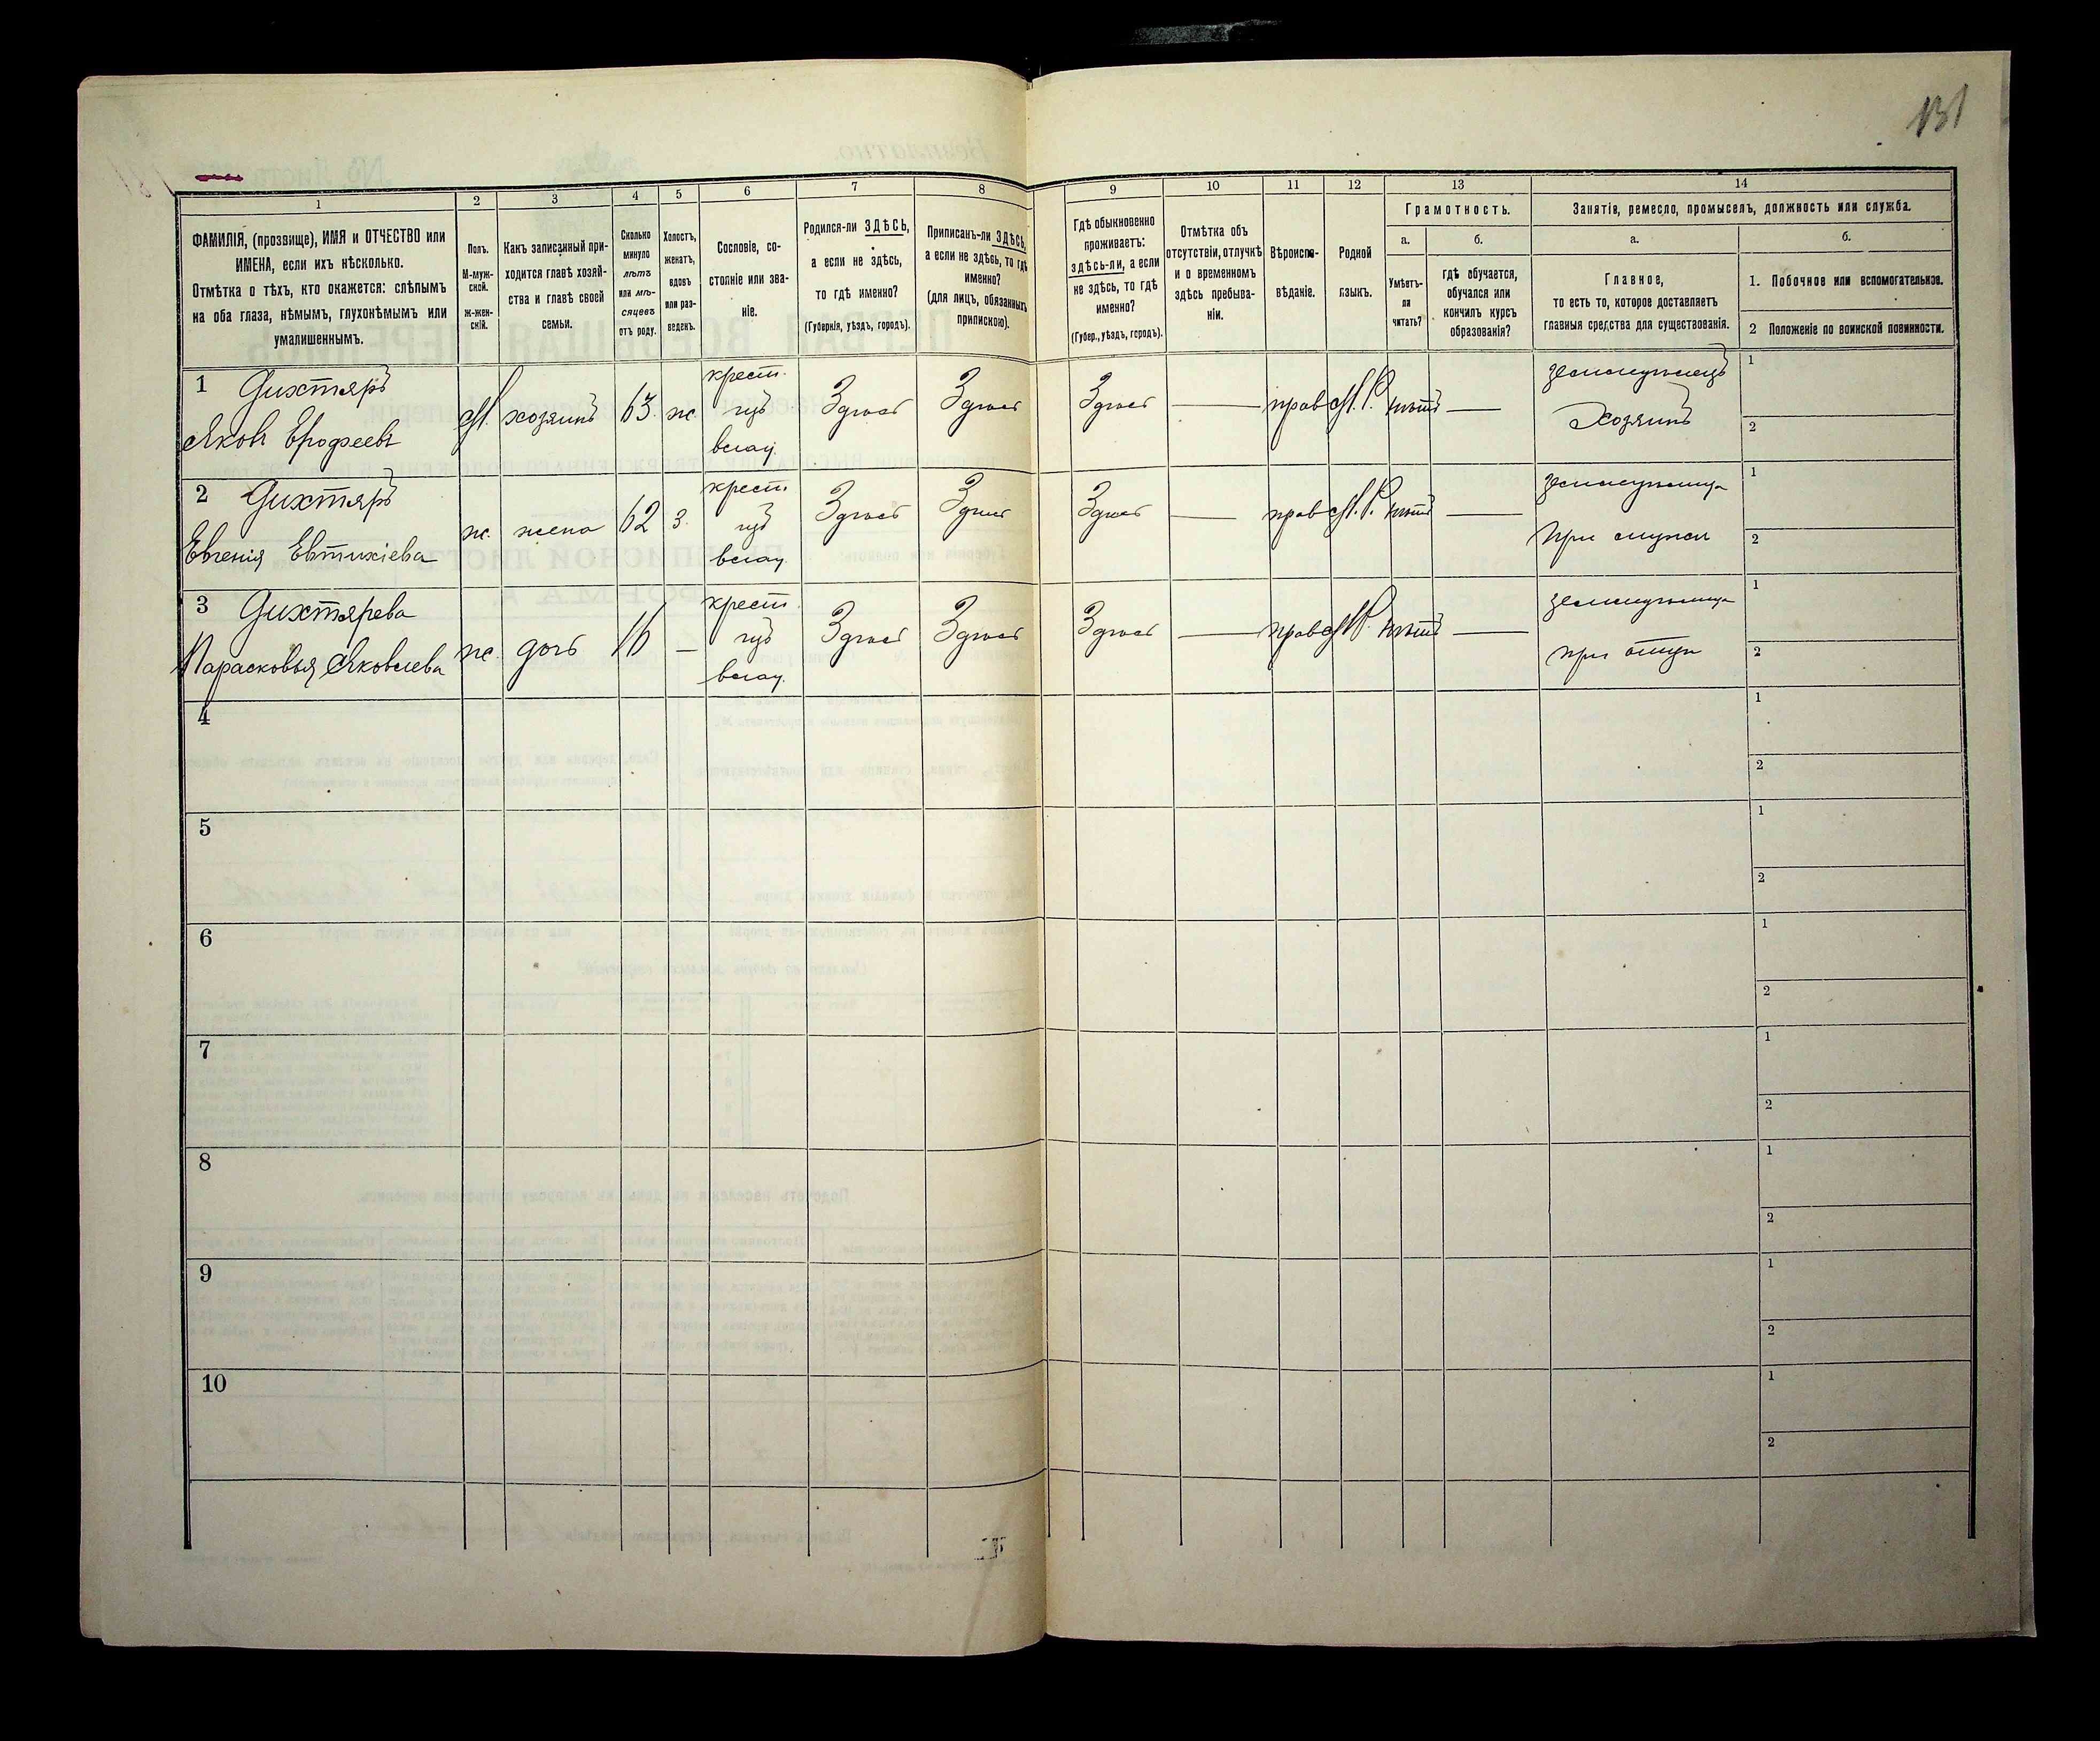 131
1
2
3
4
5
6
7
8
9
10
11
12
13
14
ФАМИЛІЯ, (прозвище), ИМЯ и ОТЧЕСТВО или
ИМЕНА, если ихъ нѣсколько.
Отмѣтка о тѣхъ, кто окажется: слѣпымъ
на оба глаза, нѣмымъ, глухонѣмымъ или
умалишеннымъ.
Полъ.
М-муж-
ской.
Ж-жен-
скій.
Какъ записанный при-
ходится главѣ хозяй-
ства и главѣ своей
семьи.
Сколько
минуло
лѣтъ
или мѣ-
сяцевъ
отъ роду.
Холостъ,
женатъ,
вдовъ
или раз-
веденъ.
Сословіе, со-
стояніе или зва-
ніе.
Родился-ли ЗДѢСЬ,
а если не здѣсь,
то гдѣ именно?
(Губернія, уѣздъ, городъ).
Приписанъ-ли ЗДѢСЬ,
а если не здѣсь, то гдѣ
именно?
(для лицъ, обязанныхъ
припискою).
Гдѣ обыкновенно
проживаетъ:
здѣсь-ли, а если
не здѣсь, то гдѣ
именно?
(Губер., уѣздъ, городъ).
Отмѣтка объ
отсутствіи, отлучкѣ
и о временномъ
здѣсь пребыва-
ніи.
Вѣроиспо-
вѣданіе.
Родной
языкъ.
Грамотность.
а.
Умѣетъ-
ли
читать?
б.
гдѣ обучается,
обучался или
кончилъ курсъ
образованія?
Занятія, ремесло, промыселъ, должность или служба.
а.
Главное,
то есть то, которое доставляетъ
главныя средства для существованія.
б.
1. Побочное или вспомогательное.
2 Положеніе по воинской повинности.
1 Дихтяръ
Яковъ Ерофеевъ
М.
хозяинъ
63.
ж.
крест.
изъ
влад.
Здѣсь
Здѣсь
Здѣсь
—
прав
М.Р.
нѣтъ
—
земледѣлецъ
Хозяинъ
1
2
2 Дихтяръ
Евгенія Евтихіева
ж.
жена
62
з.
крест
изъ
влад.
Здѣсь
Здѣсь
Здѣсь
—
прав
М.Р.
нѣтъ
—
земледѣлица
при мужѣ
1
2
3 Дихтярева
Парасковья Яковлева
ж
дочь
16
—
крест
изъ
влад.
Здѣсь
Здѣсь
Здѣсь
—
прав
М.Р.
нѣтъ
—
земледѣлица
при отцѣ
1
2
4
1
2
5
1
2
6
1
2
7
1
2
8
1
2
9
1
2
10
1
2